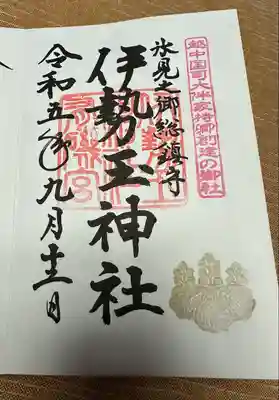 越中国司大伴家持卿創建の御社
氷見之郷総鎮守
伊勢玉神社
令和五年九月